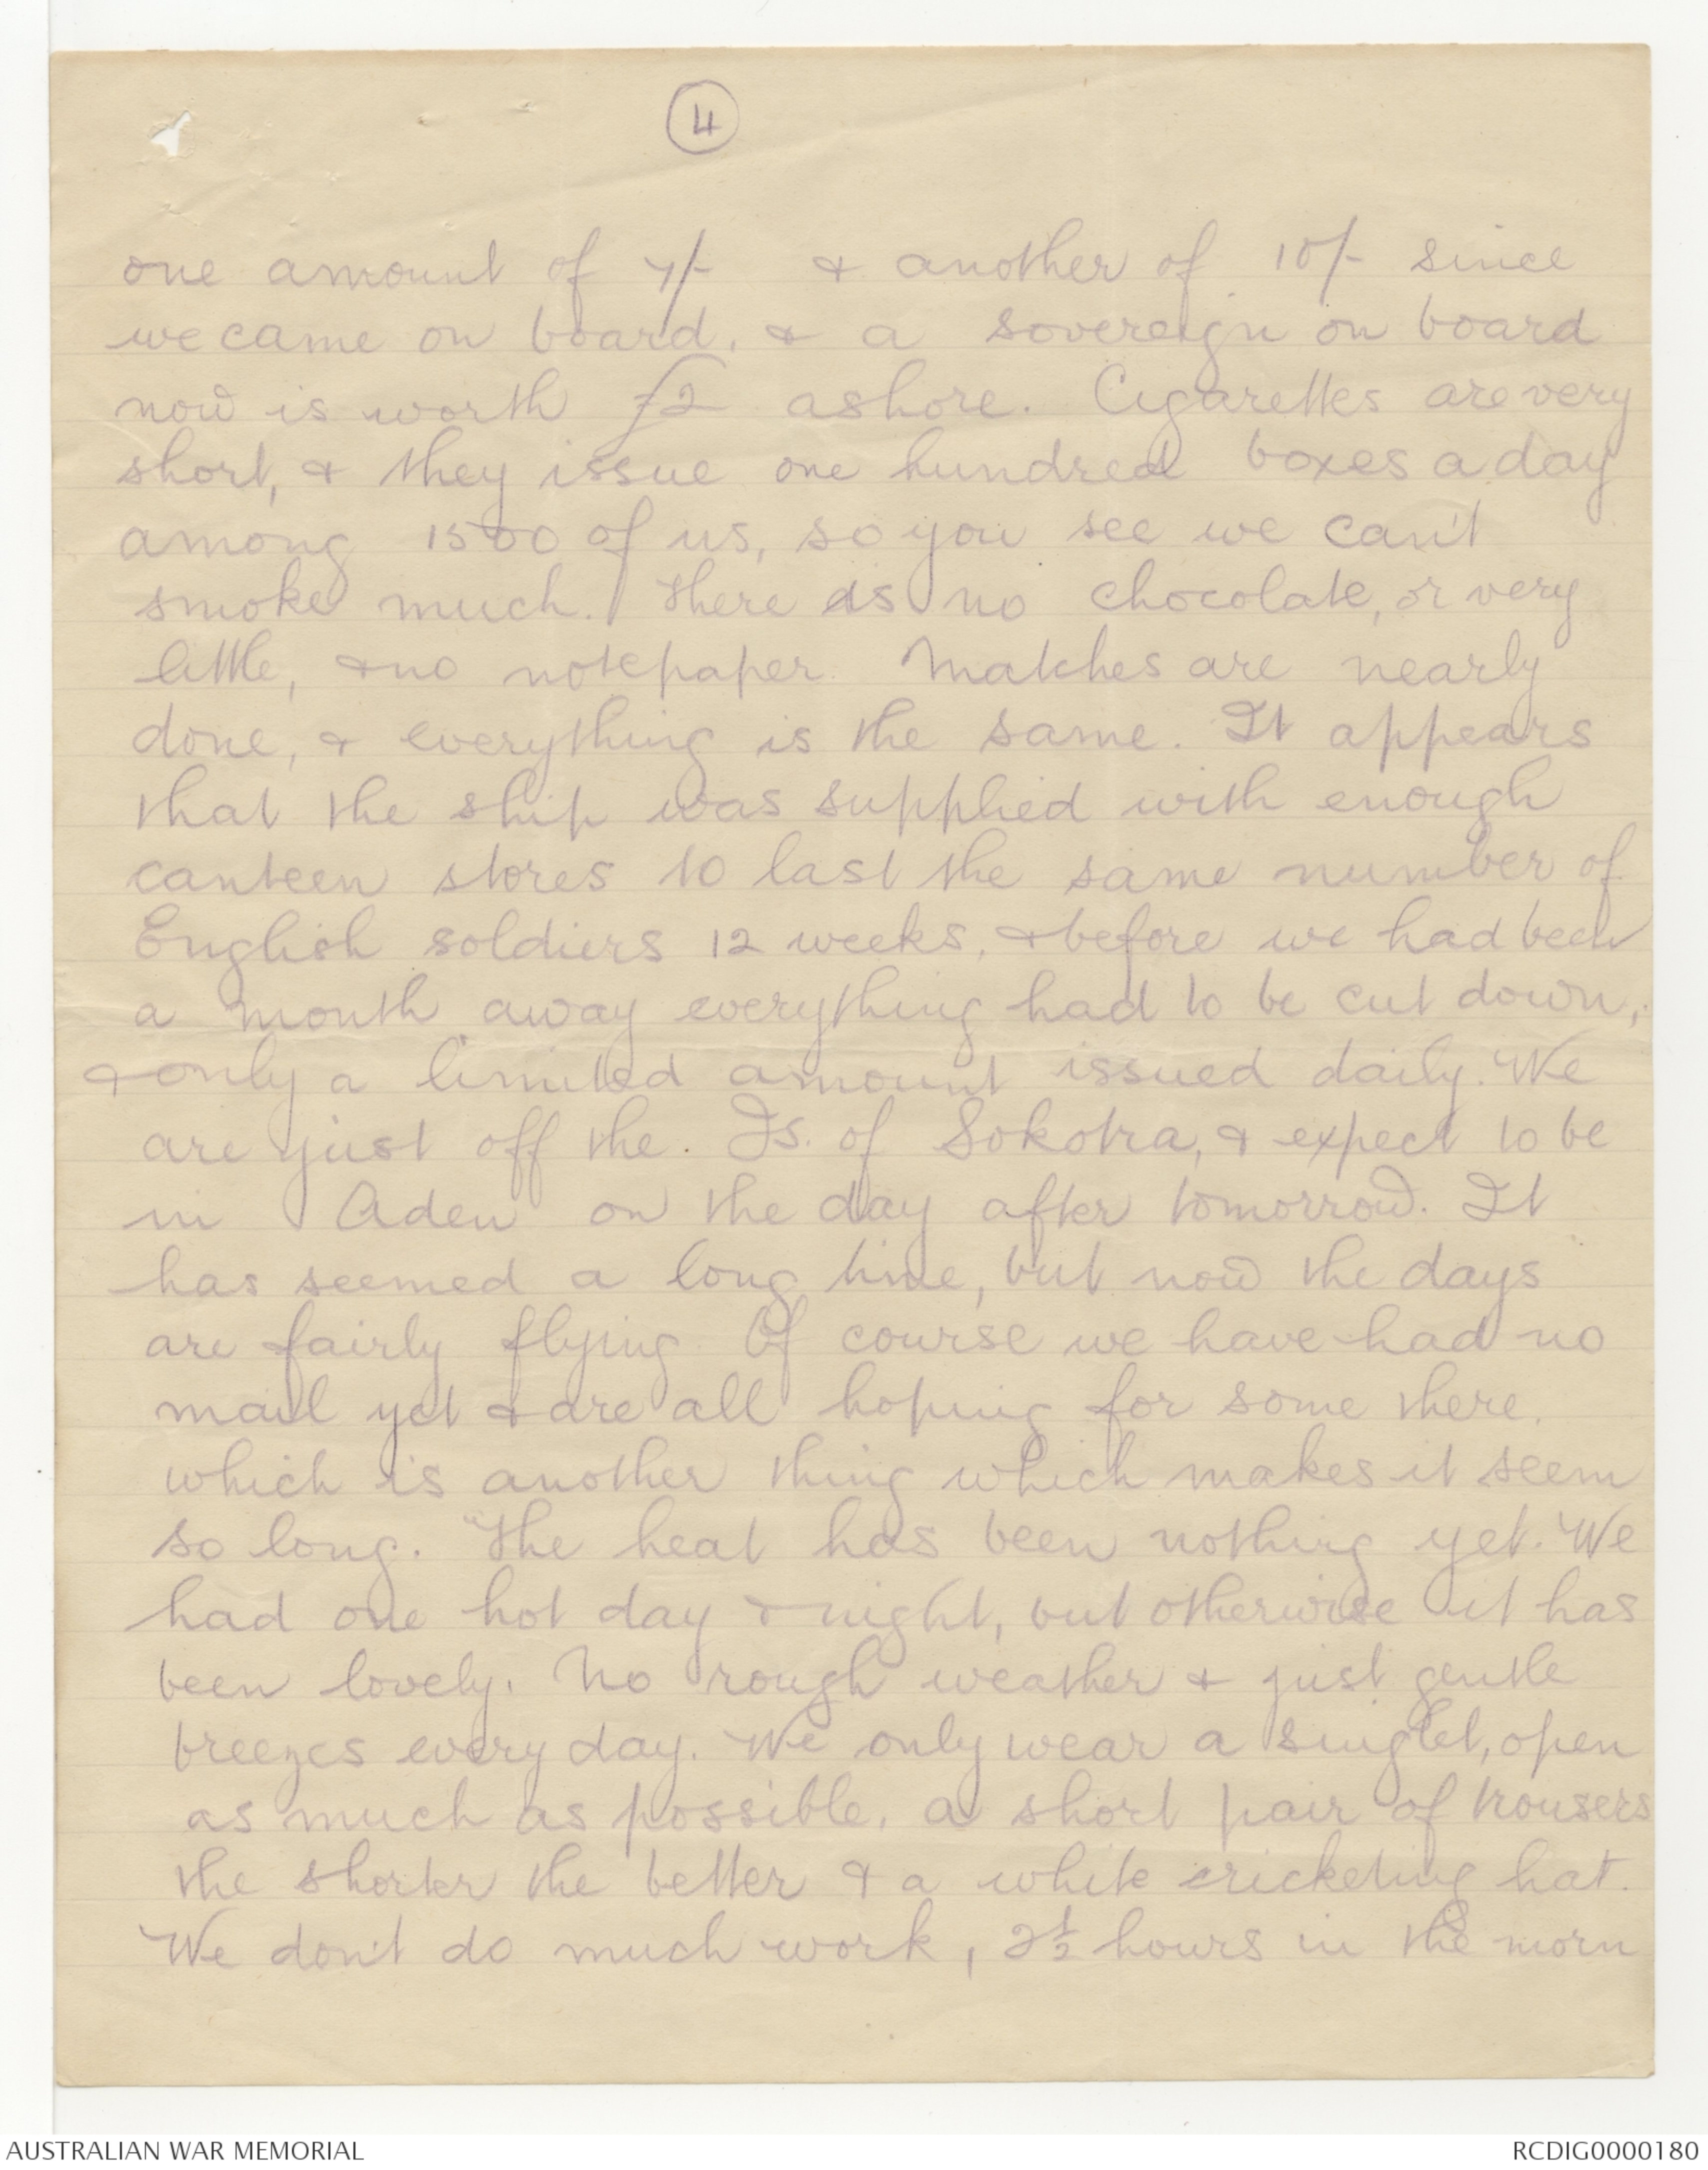 4
one amount of 7/- & another of 10/- since
we came on board, & a sovereign on board
now is worth £2 ashore. Cigarettes are very
short, & they issue one hundred boxes a day
among 1500 of us, so you see we can't
smoke much. There is no chocolate, or very
little, & no notepaper. Matches are nearly
done, & everything is the same. It appears
that the ship was supplied with enough
canteen stores to last the same number of
English soldiers 12 weeks, & before we had been
a month away everything had to be cut down,
& only a limited amount issued daily. We
are just off the. Is. of Sokotra, & expect to be
in Aden on the day after tomorrow. It
has seemed a long time, but now the days
are fairly flying. Of course we have had no
mail yet & are all hoping for some there.
which is another thing which makes it seem
so long. The heat has been nothing yet. We
had one hot day & night, but otherwise it has
been lovely. No rough weather & just gentle
breezes every day. We only wear a singlet, open
as much as possible, a short pair of trousers
the shorter the better & a white cricketing hat.
We don't do much work, 2½ hours in the morn
AUSTRALIAN WAR MEMORIAL
RCDIG0000180